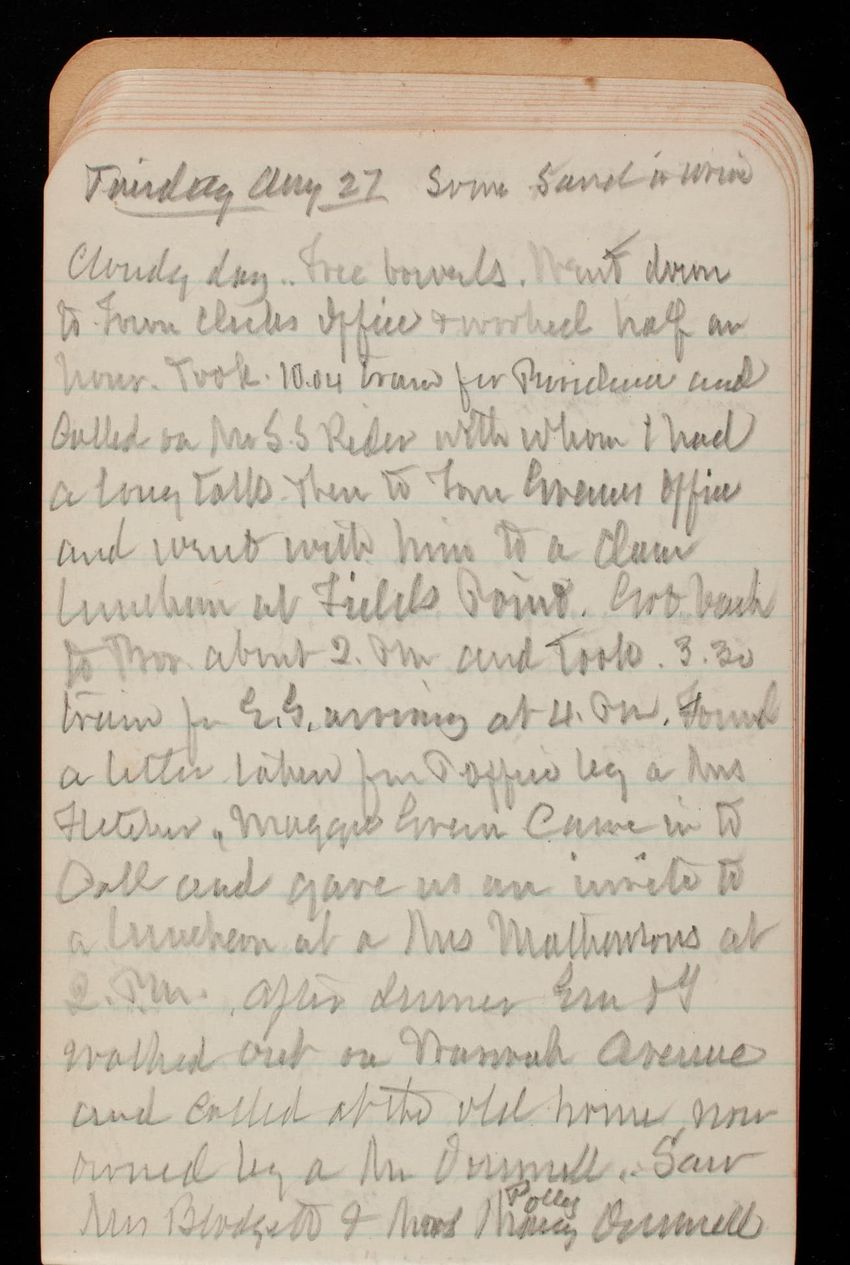 Tuesday Aug 27 Some Sand in urine
Cloudy day.. Free bowels. Went down
to Town Clerks Office & worked half an
hour. Took 10.04 train for Providence and
Called on Mr S.S Rider with whom I had
a long talk then to Tom Greenes Office
and went with him to a Clam
luncheon at Fields Point. Got back
to Prov. about 2. PM and took. 3.30
train for E.G. arriving at 4. PM. Found
a letter taken from P office by a Mrs
Fletcher, Maggie Green Came in to
Call and gave us an invite to
a luncheon at a Mrs Mathewsons at
2. P.M. After dinner Em & I
walked out on Avenue
and called at the old home now
owned by a Mr Dunnell.. Saw
Mrs Blodgett & Polly Dunnell